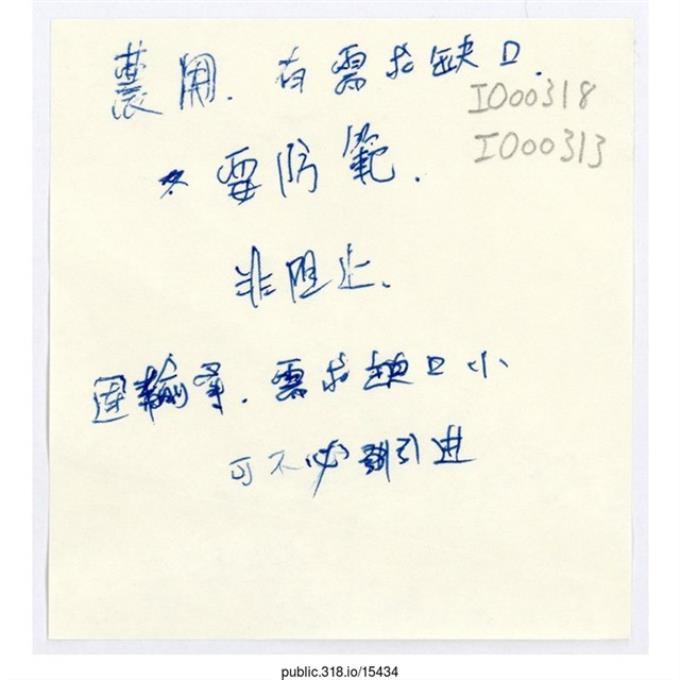 農用.有需求缺口.
I000318
I000313
要防範.
非阻止.
運輸業.需求缺口小
可不必引進
public.318.io/15434